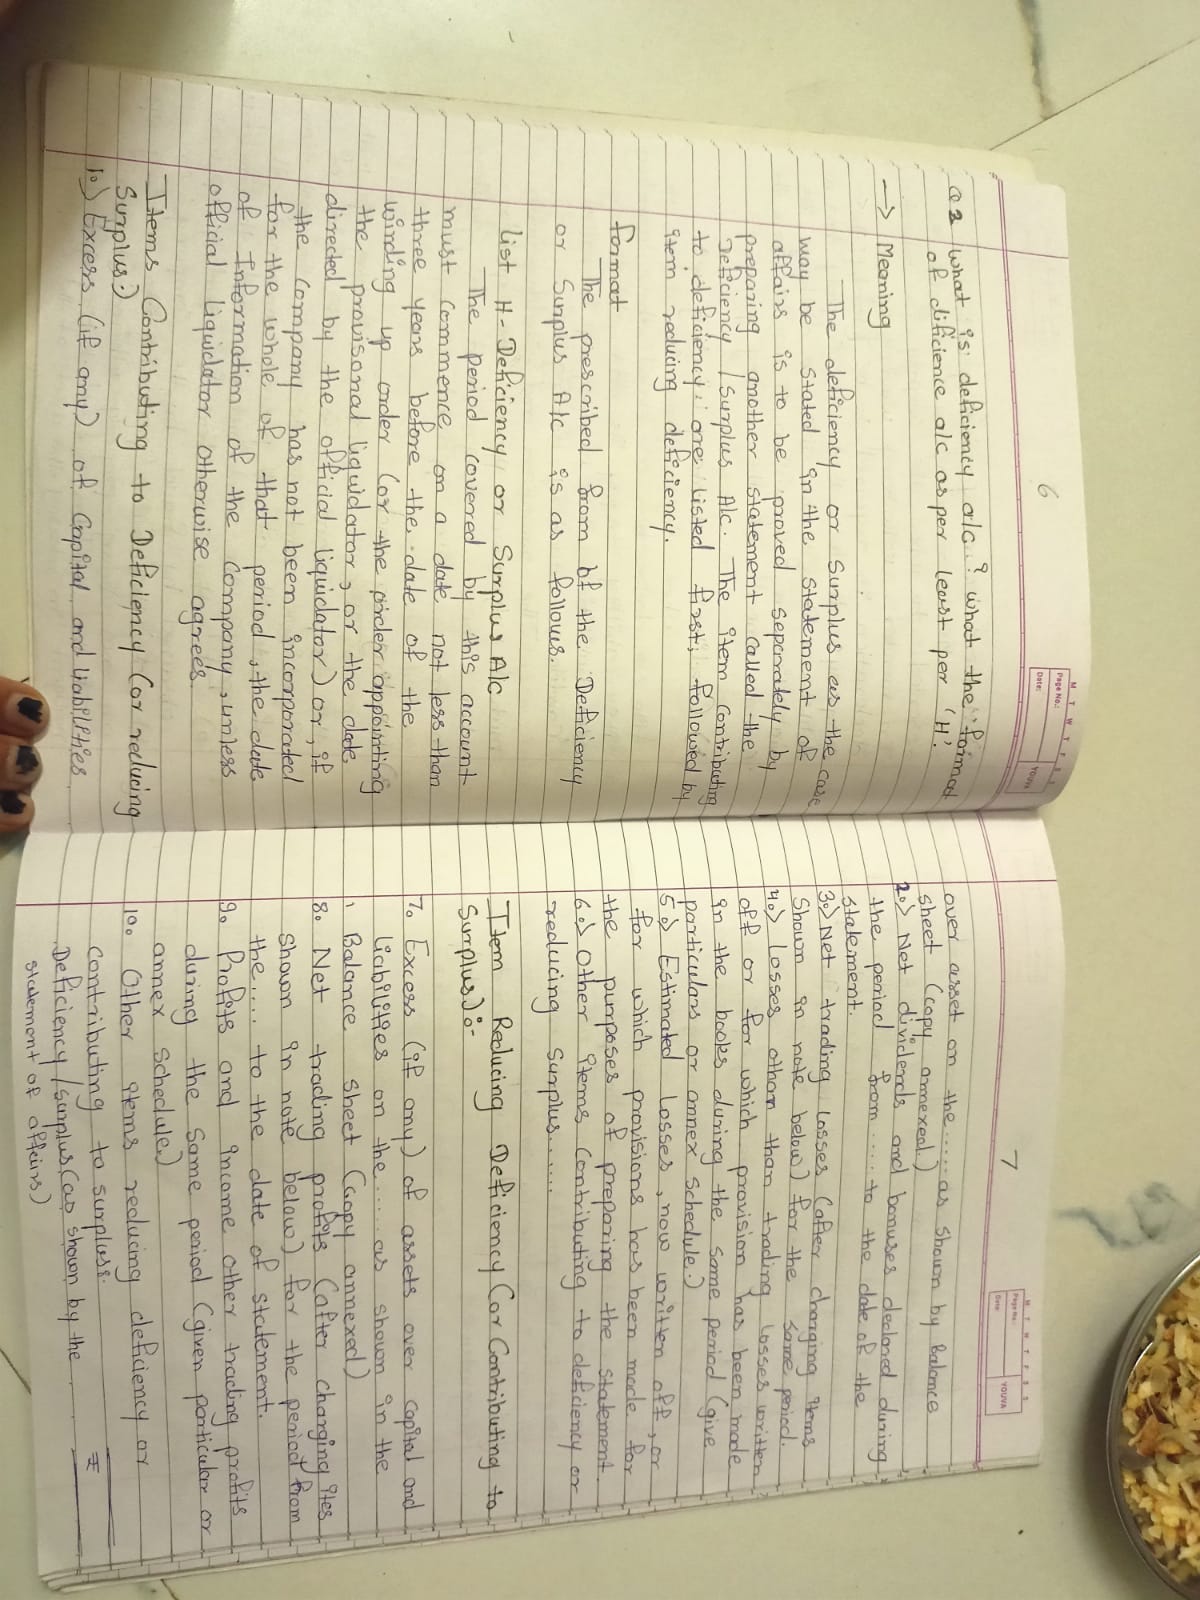 6
M T W T F S S
Page No.:
Date:
YOUVA
Q2 What is deficiency a/c? what the format
of dificience a/c as per least per 'H'.
→ Meaning
The deficiency or Surplus as the case
may be stated in the statement of
affairs is to be proved separately by
preparing another statement called the
Deficiency / Surplus A/c. The item contributing
to deficiency are listed first, followed by
item reducing deficiency.
format
The prescribed from of the Deficiency
or Surplus A/c is as follows.
List H- Deficiency or Surplus A/c
The period covered by this account
must commence on a date not less than
three years before the date of the
winding up order (or the order appointing
the provisonal liquidator, or the date
directed by the official liquidator) or, if
the company has not been incorporated
for the whole of that period, the date
of Information of the company, unless
official liquidator otherwise agrees.
Items Contributing to Deficiency (or reducing
Surplus.)
1.) Excess (if any) of Capital and liabilities
7
M T W T F S S
Page No.:
Date:
YOUVA
over asset on the ..... as shown by Balance
sheet (copy annexed.)
2.) Net dividends and bonuses declared during
the period from ..... to the date of the
statement.
3.) Net trading losses (after charging items
Shown in note below) for the same period.
4.) Losses othan than trading losses written
off or for which provision has been made
in the books during the same period (give
particulars or annex Schedule.)
5.) Estimated losses, now written off, or
for which provisions has been made for
the purposes of preparing the statement.
6.) Other items contributing to deficiency or
reducing surplus......
Item Reducing Deficiency (or Contributing to
Surplus):-
7. Excess (if any) of assets over capital and
liabilities on the ..... as shown in the
Balance sheet (Copy annexed)
8. Net trading profits (after charging ites
shown in note below) for the period from
the.... to the date of statement.
9. Profits and income other trading profits
during the same period (given particular or
annex schedule)
10. Other items reducing deficiency or
contributing to surpluss.
Deficiency / Surplus (as shown by the ₹
statement of affairs)